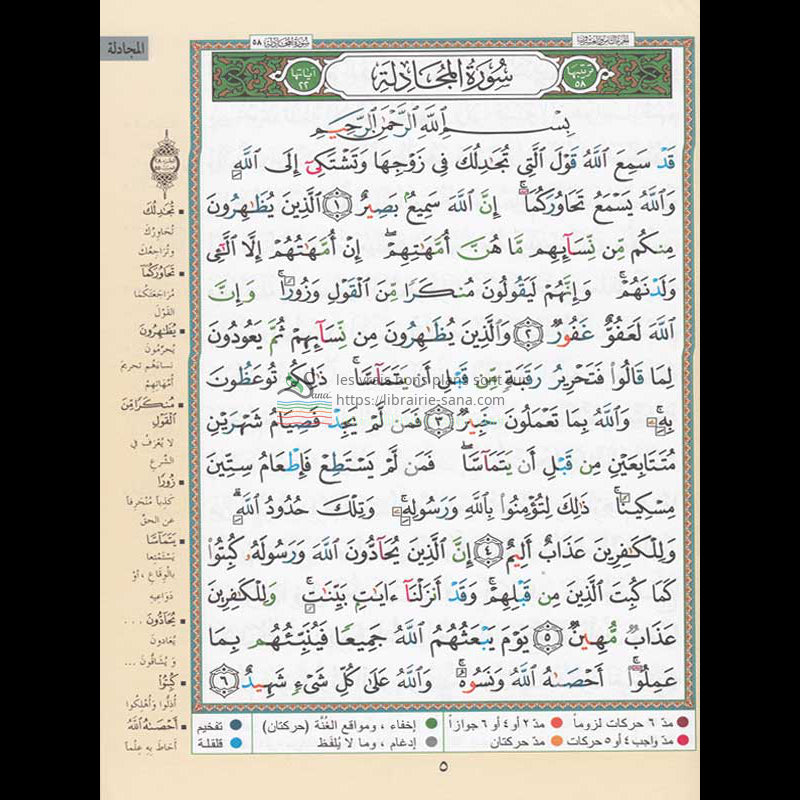 المجادلة
سُورَةُ المُجَادلَة ٥٨
الجزء الثامن والعشرون
ترتيبها ٥٨
سُورَةُ المُجَادِلَةِ
آياتها ٢٢
بِسْمِ ٱللَّهِ ٱلرَّحْمَٰنِ ٱلرَّحِيمِ
قَدْ سَمِعَ ٱللَّهُ قَوْلَ ٱلَّتِى تُجَٰدِلُكَ فِى زَوْجِهَا وَتَشْتَكِىٓ إِلَى ٱللَّهِ
وَٱللَّهُ يَسْمَعُ تَحَاوُرَكُمَآ إِنَّ ٱللَّهَ سَمِيعٌۢ بَصِيرٌ ١ ٱلَّذِينَ يُظَٰهِرُونَ
مِنكُم مِّن نِّسَآئِهِم مَّا هُنَّ أُمَّهَٰتِهِمْ ۖ إِنْ أُمَّهَٰتُهُمْ إِلَّا ٱلَّٰٓـِٔى
وَلَدْنَهُمْ ۚ وَإِنَّهُمْ لَيَقُولُونَ مُنكَرًا مِّنَ ٱلْقَوْلِ وَزُورًا ۚ وَإِنَّ
ٱللَّهَ لَعَفُوٌّ غَفُورٌ ٢ وَٱلَّذِينَ يُظَٰهِرُونَ مِن نِّسَآئِهِمْ ثُمَّ يَعُودُونَ
لِمَا قَالُوا۟ فَتَحْرِيرُ رَقَبَةٍ مِّن قَبْلِ أَن يَتَمَآسَّا ۚ ذَٰلِكُمْ تُوعَظُونَ
بِهِۦ ۚ وَٱللَّهُ بِمَا تَعْمَلُونَ خَبِيرٌ ٣ فَمَن لَّمْ يَجِدْ فَصِيَامُ شَهْرَيْنِ
مُتَتَابِعَيْنِ مِن قَبْلِ أَن يَتَمَآسَّا ۖ فَمَن لَّمْ يَسْتَطِعْ فَإِطْعَامُ سِتِّينَ
مِسْكِينًا ۚ ذَٰلِكَ لِتُؤْمِنُوا۟ بِٱللَّهِ وَرَسُولِهِۦ ۚ وَتِلْكَ حُدُودُ ٱللَّهِ ۗ
وَلِلْكَٰفِرِينَ عَذَابٌ أَلِيمٌ ٤ إِنَّ ٱلَّذِينَ يُحَآدُّونَ ٱللَّهَ وَرَسُولَهُۥ كُبِتُوا۟
كَمَا كُبِتَ ٱلَّذِينَ مِن قَبْلِهِمْ ۚ وَقَدْ أَنزَلْنَآ ءَايَٰتٍۭ بَيِّنَٰتٍ ۚ وَلِلْكَٰفِرِينَ
عَذَابٌ مُّهِينٌ ٥ يَوْمَ يَبْعَثُهُمُ ٱللَّهُ جَمِيعًا فَيُنَبِّئُهُم بِمَا
عَمِلُوٓا۟ ۚ أَحْصَىٰهُ ٱللَّهُ وَنَسُوهُ ۚ وَٱللَّهُ عَلَىٰ كُلِّ شَىْءٍ شَهِيدٌ ٦
les vrais bons plans sont sur
https://librairie-sana.com
Sana
تُجَٰدِلُكَ
تُحَاوِرُكَ
وتُرَاجِعُكَ
تَحَاوُرَكُمَا
مُرَاجَعَتَكُمَا
القَوْلَ
يُظَٰهِرُونَ
يُحرِّمُونَ
نساءَهُم تحريمَ
أُمَّهَاتِهِمْ
مُنكَرًا مِّنَ
ٱلْقَوْلِ
لا يُعْرَفُ في
الشَّرعِ
زُورًا
كَذِباً مُنْحَرِفاً
عن الحقّ
يَتَمَآسَّا
يَسْتَمْتِعا
بالْوِقَاعِ ، أوْ
دَوَاعِيهِ
يُحَآدُّونَ ...
يُعَادونَ
وَ يُشَاقُّونَ ...
كُبِتُوا۟
أُذِلُّوا وأُهْلِكُوا
أَحْصَىٰهُ ٱللَّهُ
أحَاطَ بِهِ عِلْماً
مدّ ٦ حركات لزوماً مدّ ٢ أو ٤ أو ٦ جوازاً إخفاء ، ومواقع الغُنَّة (حركتان) تفخيم
مدّ واجب ٤ أو ٥ حركات مدّ حركتان إدغام ، وما لا يُلفَظ قلقلة
٥